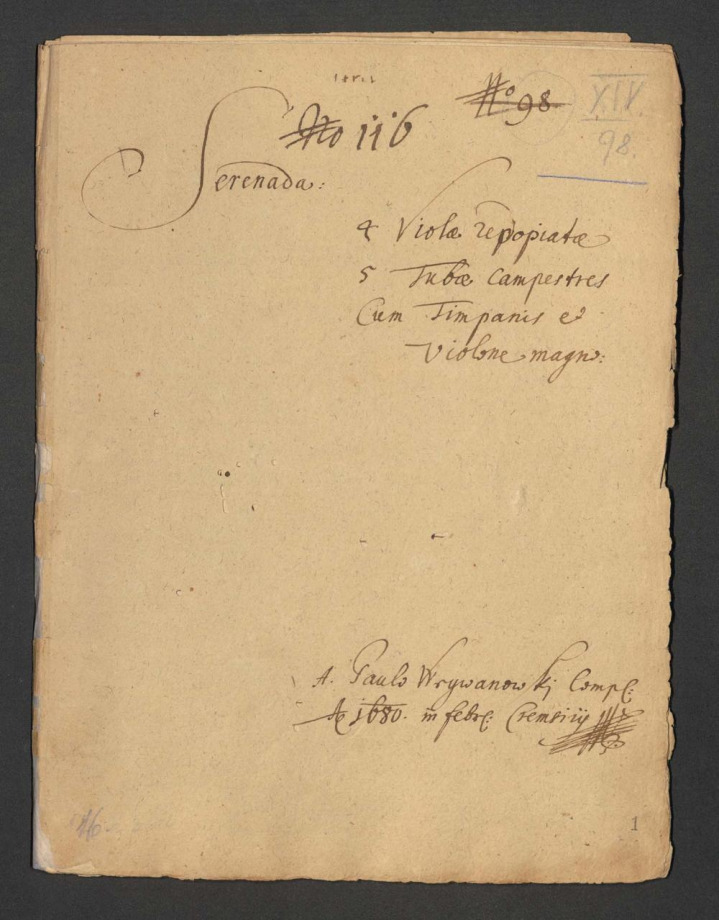 No 98
XIV
98.
No 116
Serenada:
4 Violæ repopiatæ
5 Tubæ Campestres
Cum Timpanis et
Violone magno:
A. Paulo Wrywanowskj Comp:
Ao 1680. in febr: Cremsirij
1